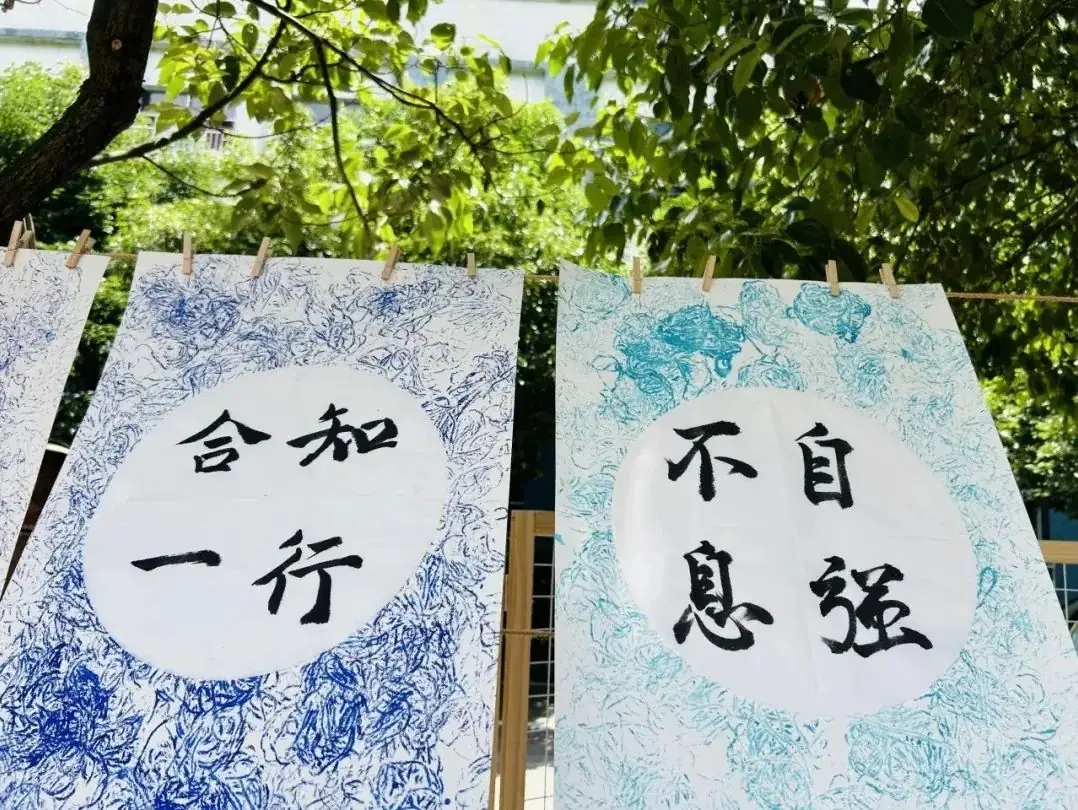 知行
合一
自强
不息